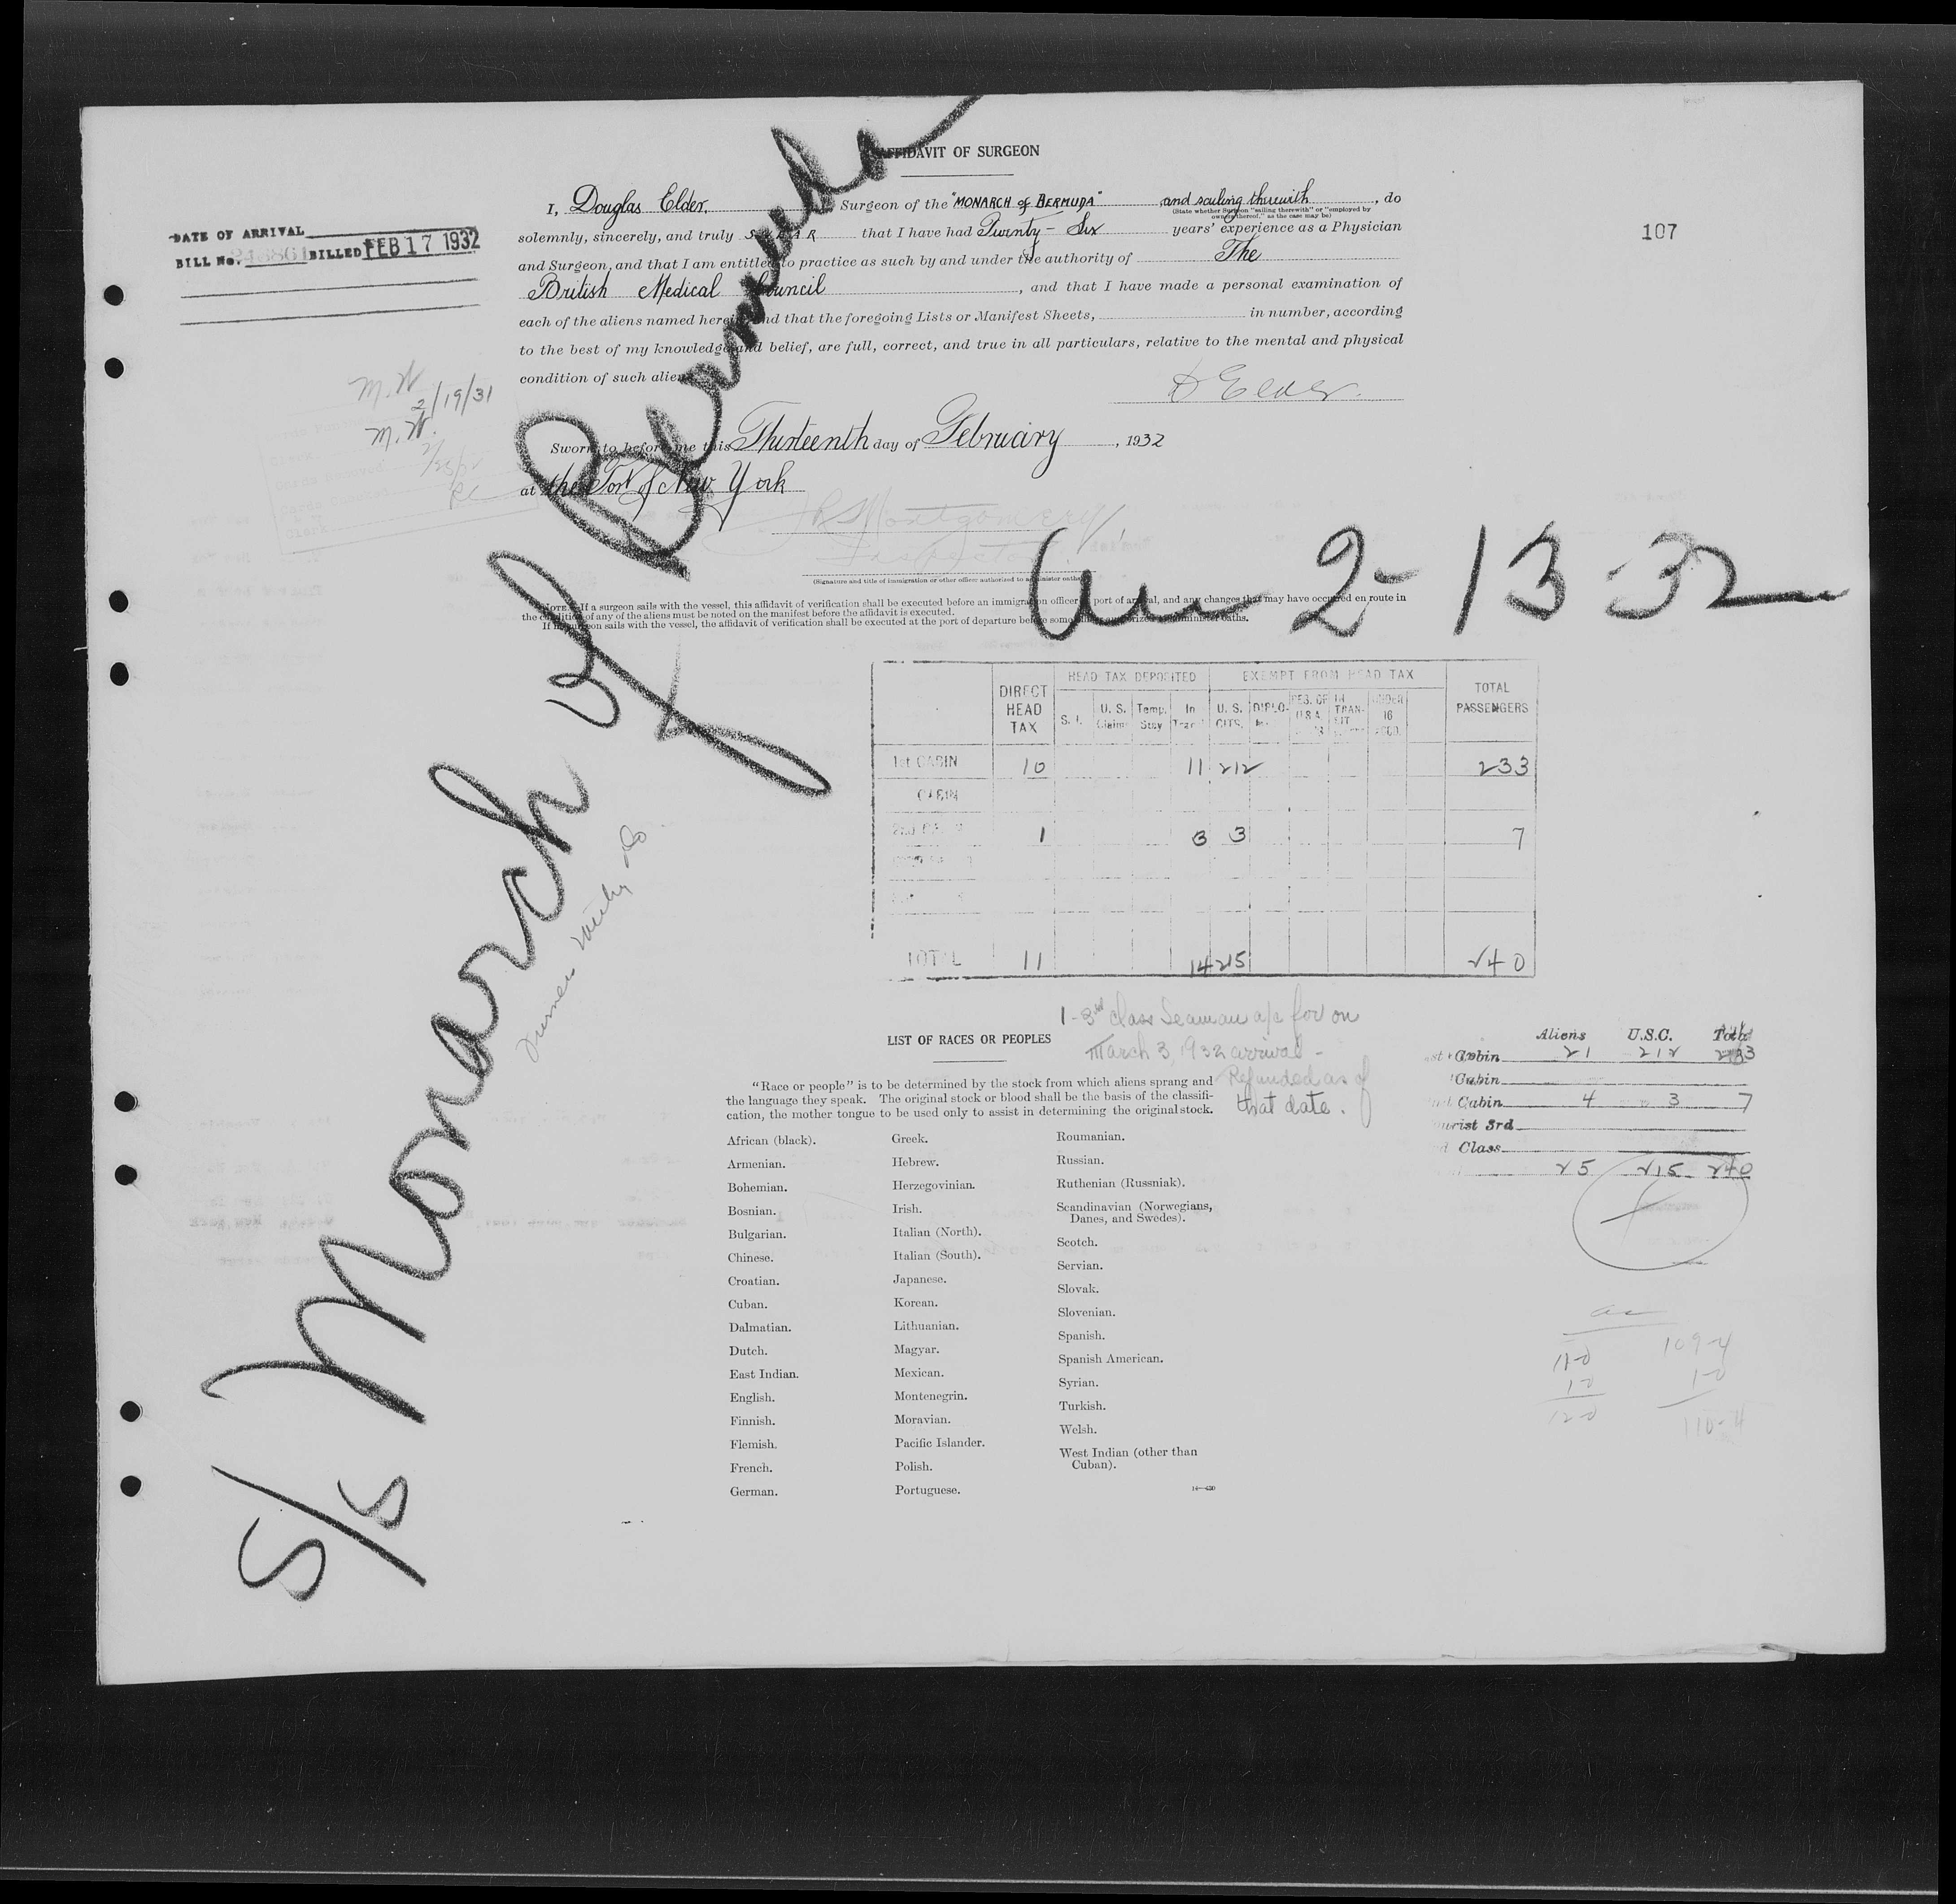 AFFIDAVIT OF SURGEON
I, Douglas Elder, Surgeon of the "MONARCH of BERMUDA" and sailing therewith, do
(State whether Surgeon "sailing therewith" or "employed by owners thereof," as the case may be)
solemnly, sincerely, and truly SWEAR that I have had Twenty-Six years' experience as a Physician
and Surgeon, and that I am entitled to practice as such by and under the authority of The
British Medical Council, and that I have made a personal examination of
each of the aliens named herein and that the foregoing Lists or Manifest Sheets, in number, according
to the best of my knowledge and belief, are full, correct, and true in all particulars, relative to the mental and physical
condition of such aliens
D Elder.
Sworn to before me this Thirteenth day of February, 1932
at the Port of New York
JRS Montgomery
Inspector
(Signature and title of immigration or other officer authorized to administer oaths)
NOTE.—If a surgeon sails with the vessel, this affidavit of verification shall be executed before an immigration officer port of arrival, and any changes that may have occurred en route in
the condition of any of the aliens must be noted on the manifest before the affidavit is executed.
If no surgeon sails with the vessel, the affidavit of verification shall be executed at the port of departure before some authorized to administer oaths.
DATE OF ARRIVAL
BILL No. BILLED FEB 17 1932
107
M.W.
2/19/31
M.W.
S/S Monarch of Bermuda
Arr 2-13-32
DIRECT HEAD TAX
HEAD TAX DEPOSITED
EXEMPT FROM HEAD TAX
TOTAL PASSENGERS
S. I. U. S. Claims Temp. Stay In Transit U. S. CITS. DIPLO- RES. OF U.S.A. IN TRANSIT UNDER 16 ACCO.
1st CABIN 10 11 212 233
CABIN
2nd 1 3 3 7
TOTAL 11 14 215 240
1-3rd class Seaman a/c for on
March 3, 1932 arrival -
Refunded as of
that date.
Aliens U.S.C. Total
1st Cabin 21 212 233
Cabin
2nd Cabin 4 3 7
Tourist 3rd
3rd Class
25 215 240
11-0 109-4
1-0 1-0
12-0 110-4
LIST OF RACES OR PEOPLES
"Race or people" is to be determined by the stock from which aliens sprang and
the language they speak. The original stock or blood shall be the basis of the classifi-
cation, the mother tongue to be used only to assist in determining the original stock.
African (black).
Armenian.
Bohemian.
Bosnian.
Bulgarian.
Chinese.
Croatian.
Cuban.
Dalmatian.
Dutch.
East Indian.
English.
Finnish.
Flemish.
French.
German.
Greek.
Hebrew.
Herzegovinian.
Irish.
Italian (North).
Italian (South).
Japanese.
Korean.
Lithuanian.
Magyar.
Mexican.
Montenegrin.
Moravian.
Pacific Islander.
Polish.
Portuguese.
Roumanian.
Russian.
Ruthenian (Russniak).
Scandinavian (Norwegians,
Danes, and Swedes).
Scotch.
Servian.
Slovak.
Slovenian.
Spanish.
Spanish American.
Syrian.
Turkish.
Welsh.
West Indian (other than
Cuban).
14—430